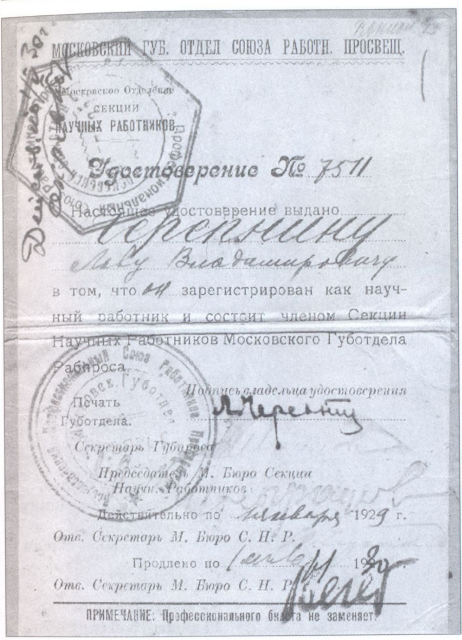 МОСКОВСКИЙ ГУБ. ОТДЕЛ СОЮЗА РАБОТН. ПРОСВЕЩ.
Московское Отделение
СЕКЦИИ
НАУЧНЫХ РАБОТНИКОВ
Удостоверение № 7511
Настоящее удостоверение выдано
Черепнину
Льву Владимировичу
в том, что он зарегистрирован как науч-
ный работник и состоит членом Секции
Научных Работников Московского Губотдела
Рабпроса.
Подпись владельца удостоверения
Печать
Губотдела.
Л. Черепнин
Секретарь Губпроса
Председатель М. Бюро Секции
Научн. Работников
Действительно по 1 января 1929 г.
Отв. Секретарь М. Бюро С. Н. Р.
Продлено по 1 19
Отв. Секретарь М. Бюро С. Н. Р.
ПРИМЕЧАНИЕ: Профессионального билета не заменяет.